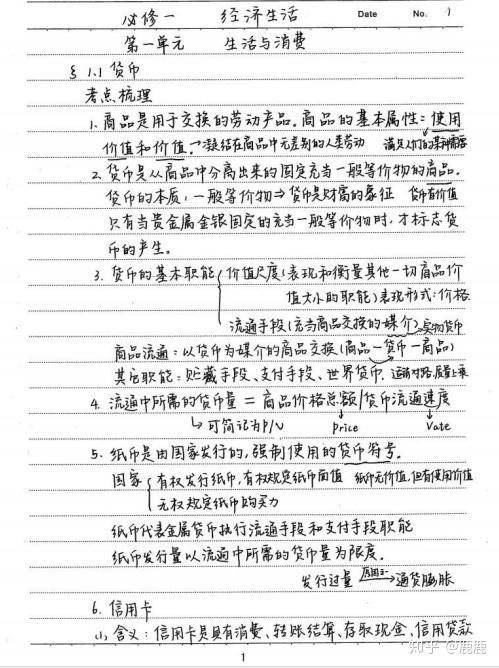 必修一 经济生活 Date No. 1
第一单元 生活与消费
§ 1.1 货币
考点梳理
1. 商品是用于交换的劳动产品。商品的基本属性:使用
价值和价值。→凝结在商品中无差别的人类劳动 满足人们的某种需要
2. 货币是从商品中分离出来的固定充当一般等价物的商品。
货币的本质,一般等价物⇒货币是财富的象征 货币有价值
只有当贵金属金银固定的充当一般等价物时,才标志货
币的产生。
3. 货币的基本职能 { 价值尺度(表现和衡量其他一切商品价
值大小的职能)表现形式:价格
流通手段(充当商品交换的媒介)实物货币
商品流通:以货币为媒介的商品交换(商品—货币—商品)
其它职能:贮藏手段、支付手段、世界货币.
4. 流通中所需的货币量 = 商品价格总额/货币流通速度
→可简记为P/V price Vate
5. 纸币是由国家发行的,强制使用的货币符号。
国家 { 有权发行纸币,有权规定纸币面值 纸币无价值,但有使用价值
无权规定纸币购买力
纸币代表金属货币执行流通手段和支付手段职能
纸币发行量以流通中所需的货币量为限度。
发行过量 → 通货膨胀
6. 信用卡
(1) 含义:信用卡是具有消费、转账结算、存取现金、信用贷款
知乎 @鹿鹿
1